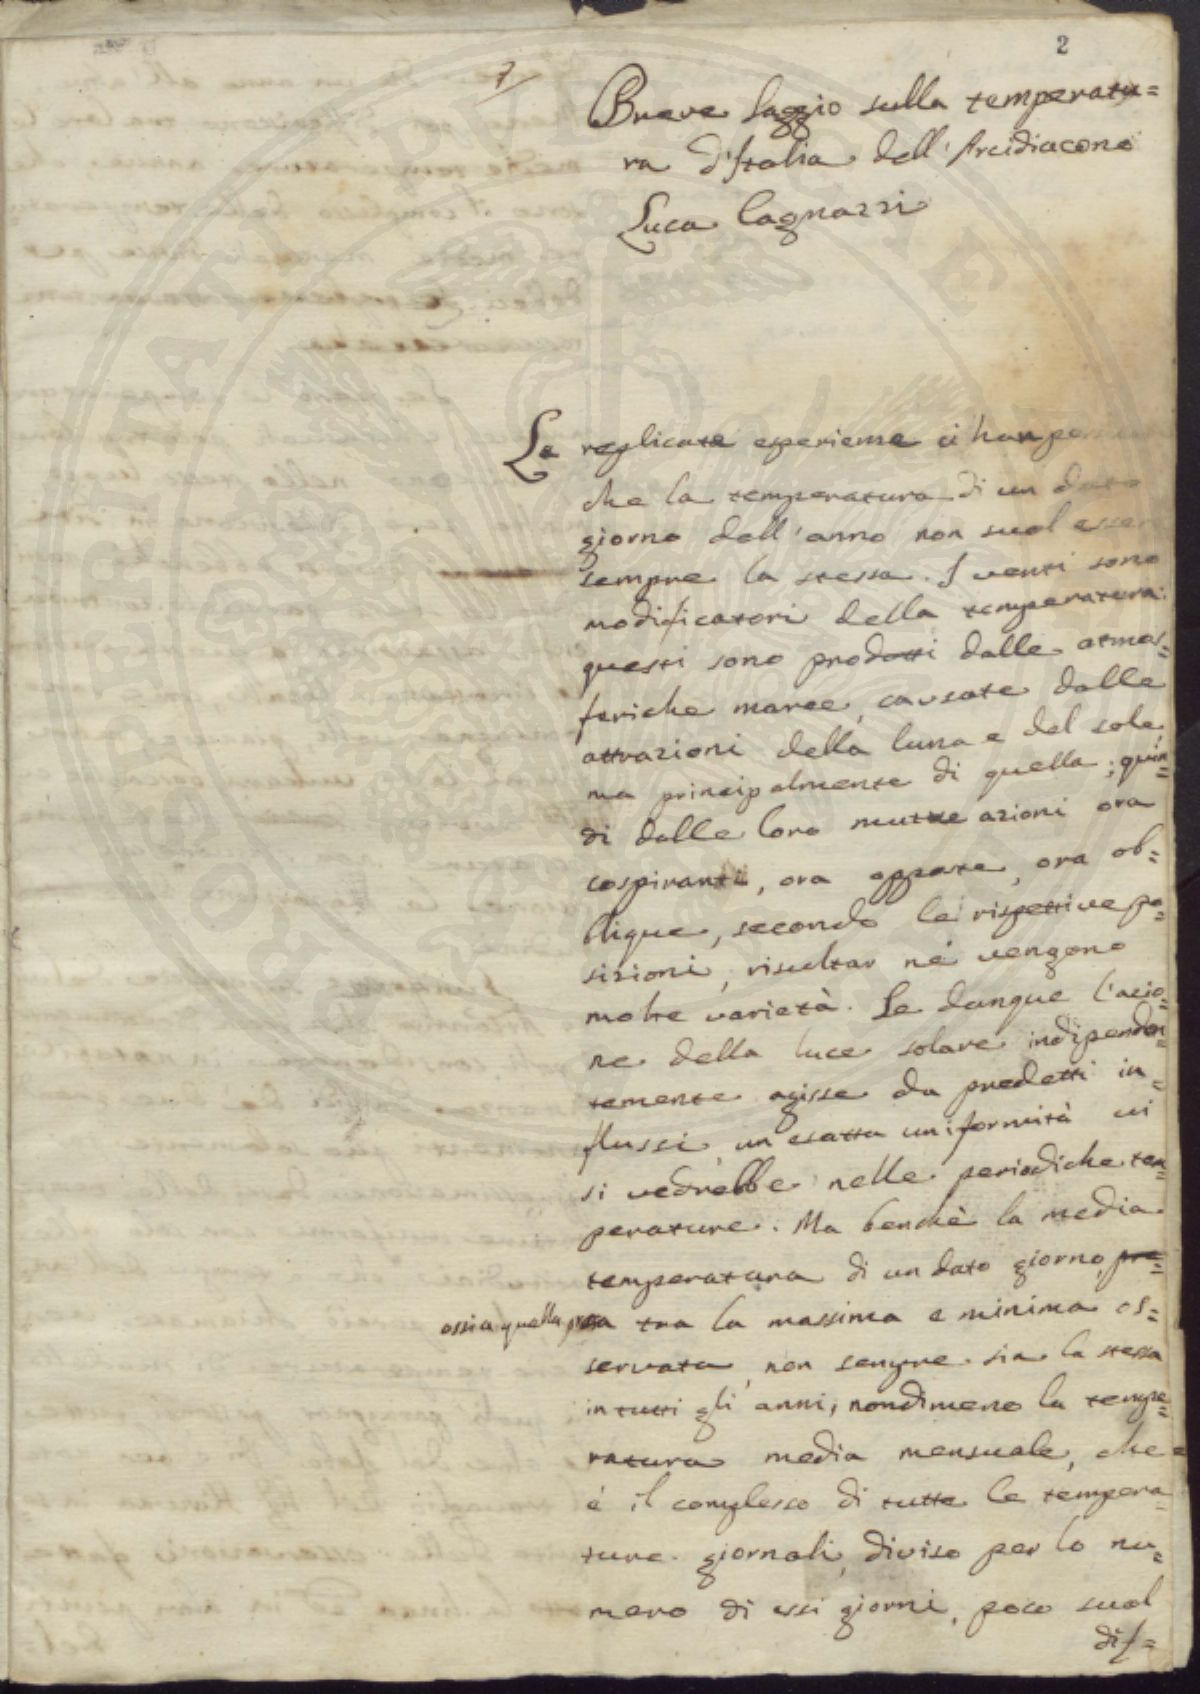 2
7
Breve Saggio sulla temperatu=
ra d'Italia dell'Arcidiacono
Luca Cagnazzi
Le replicate esperienze ci han
che la temperatura di un dato
giorno dell'anno non suol esser
sempre la stessa. I venti sono
modificatori della temperatura:
questi sono prodotti dalle atmos=
feriche maree, causate dalle
attrazioni della luna e del sole,
ma principalmente di quella; quin=
di dalle loro mutue azioni ora
cospiranti, ora opposte, ora ob=
blique, secondo le rispettive po=
sizioni, risultar né vengono
molte varietà. Se dunque l'azio=
ne della luce solare indipenden=
temente agisse da predetti in=
flussi, un'esatta uniformità ci
si vedrebbe nelle periodiche tem=
perature. Ma benchè la media
temperatura di un dato giorno, pre=
ossia quella presa tra la massima e minima os=
servata, non sempre sia la stessa
in tutti gli anni; nondimeno la tempe=
ratura media mensuale, che
è il complesso di tutte le tempera=
ture giornali, diviso per lo nu=
mero di essi giorni, poco suol
dif=